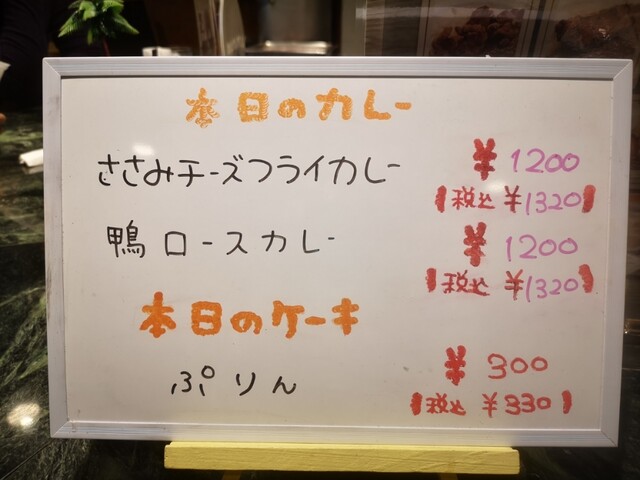 本日のカレー
ささみチーズフライカレー ¥1200
(税込 ¥1320)
鴨ロースカレー ¥1200
(税込 ¥1320)
本日のケーキ
ぷりん ¥300
(税込 ¥330)